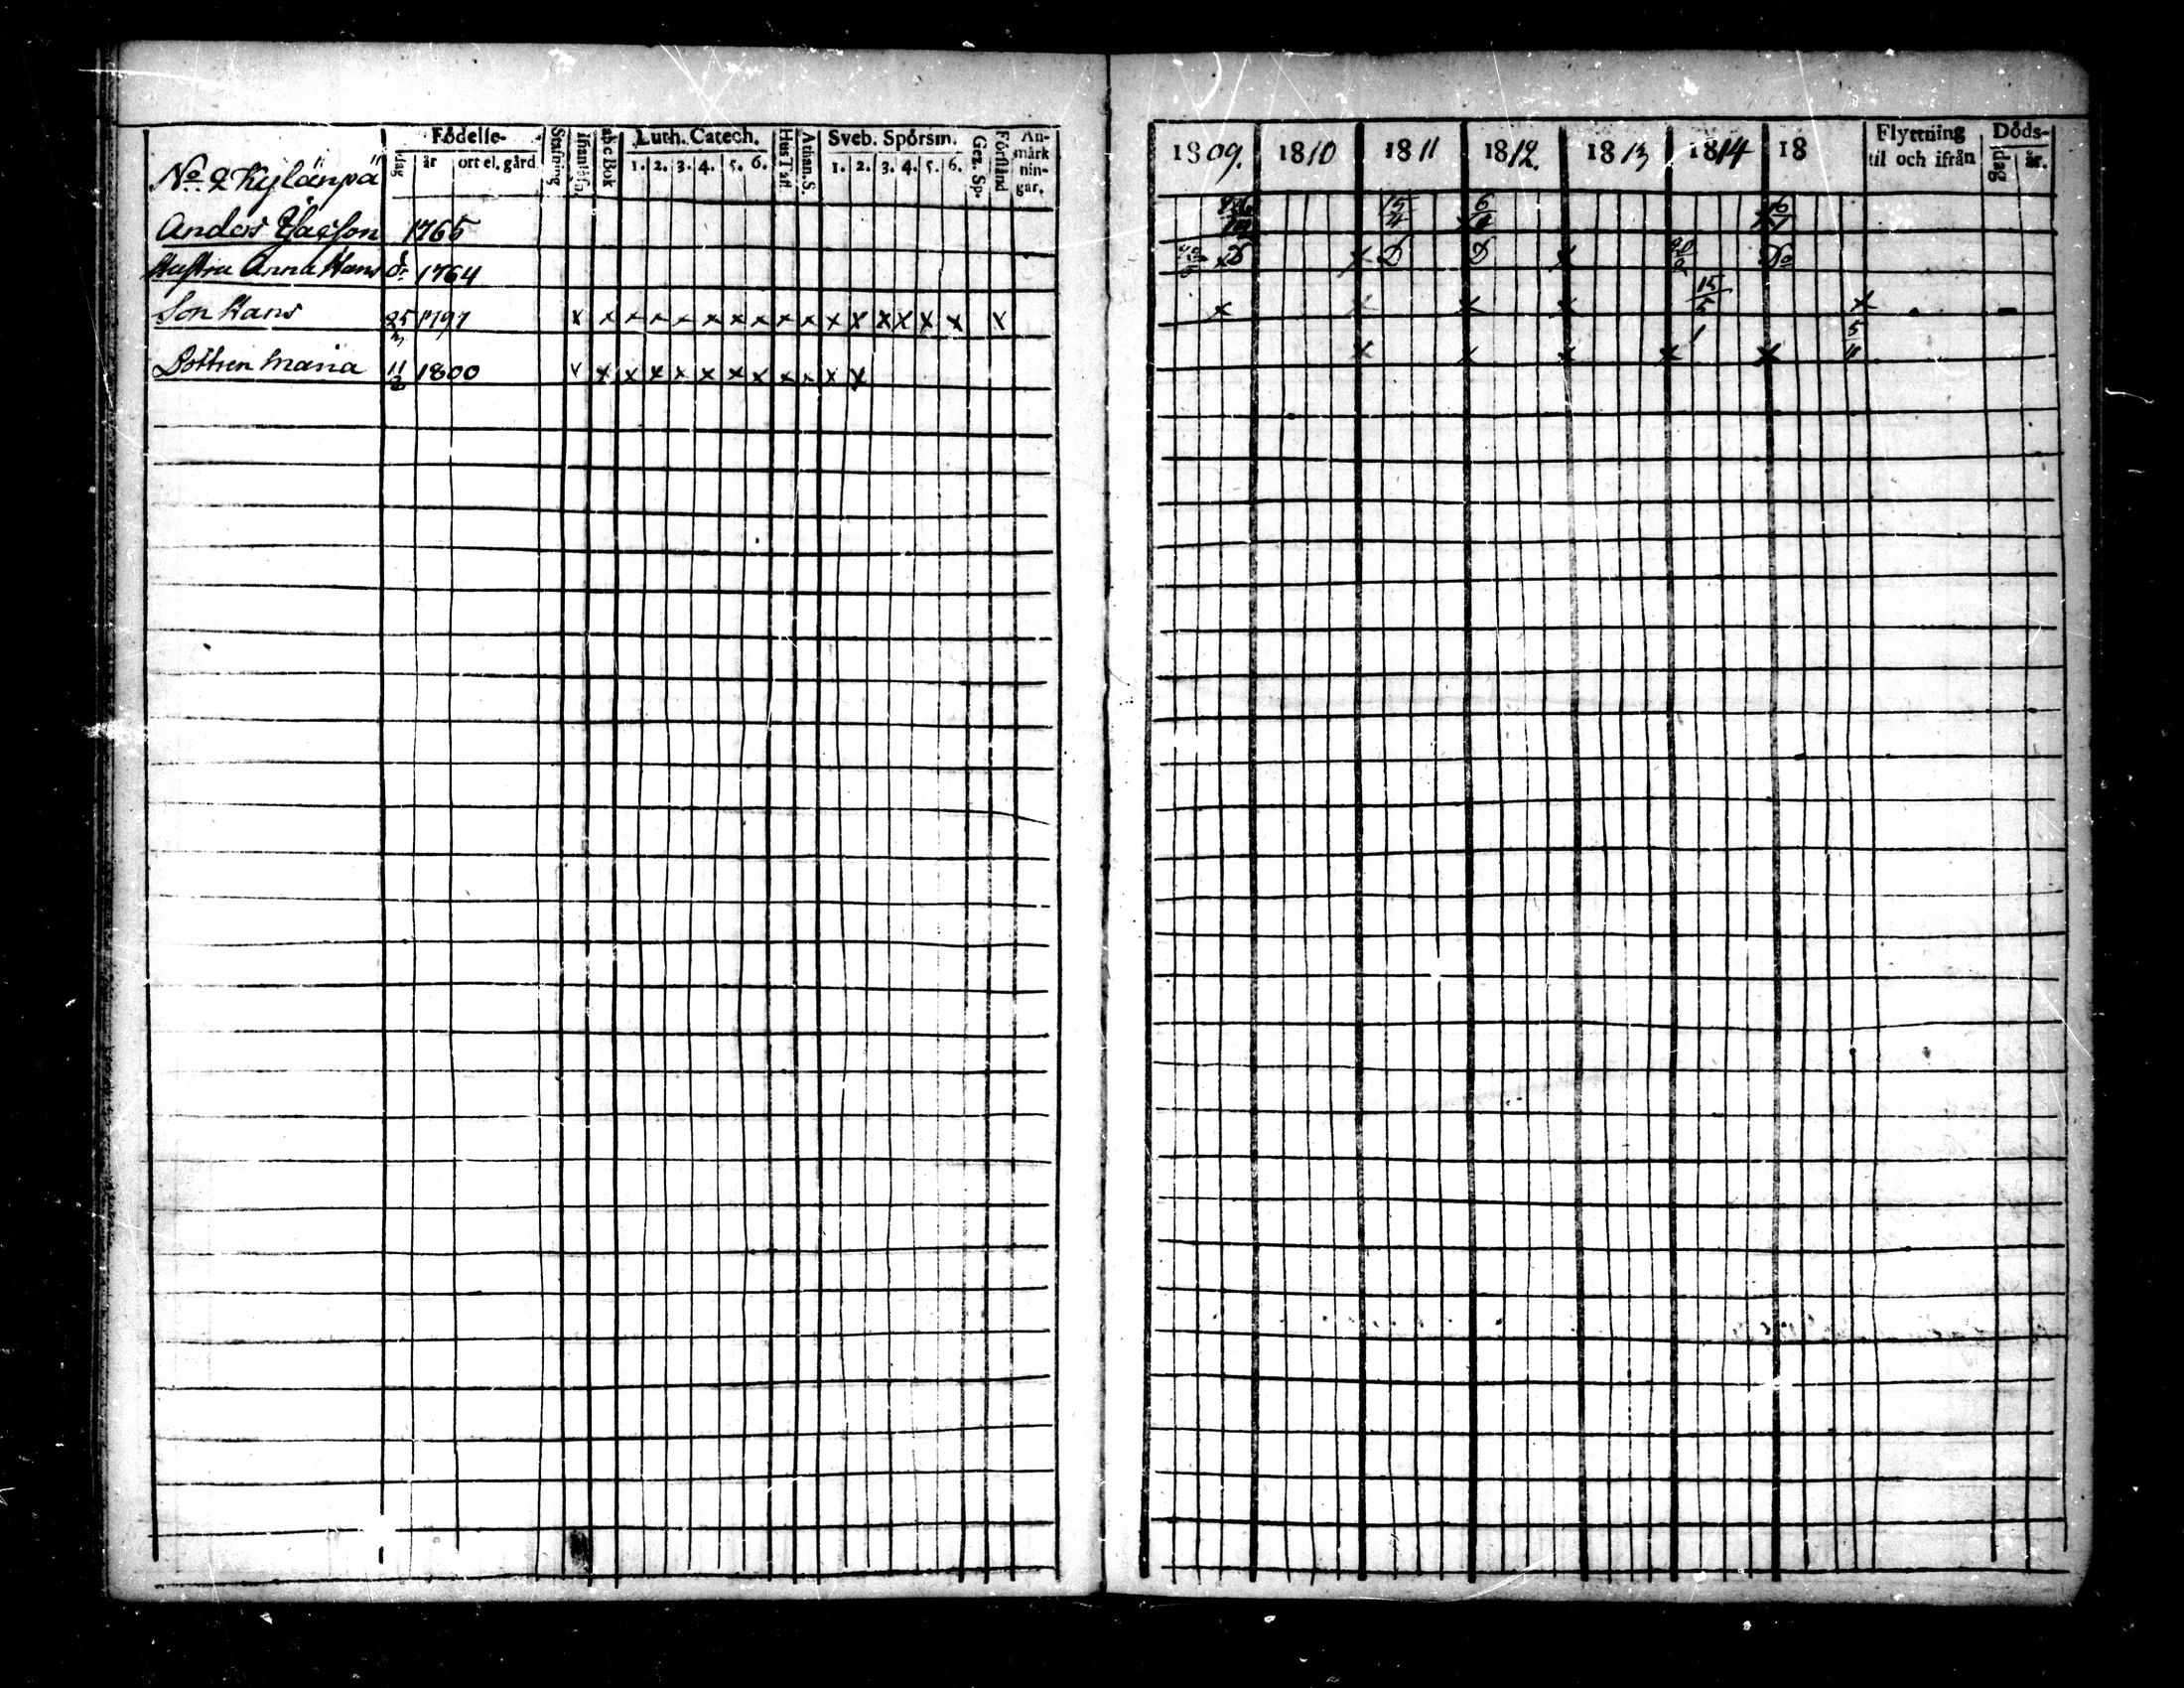 Födelse- Luth. Catech. Sveb. Spörsm.
dag år ort el. gård. Stafning. abc Bok 1. 2. 3. 4. 5. 6. Hus Tafl. Athan. S. 1. 2. 3. 4. 5. 6. Gez. Sp. Förstånd An-märk-nin-gar.
No 2 Kylänpä
Anders Jacsson 1765
Hustru Anna Hans dr 1764
Son Hans 25/3 1797 x x x x x x x x x x x x x x x x x
Dottren Maria 11/2 1800 x x x x x x x x x x x x
1809. 1810 1811 1812. 1813 1814 18 Flyttning til och ifrån Döds- dag år.
15/4 6/4
D x D D x
x x x x 15/5 x
x x x x x 5/11